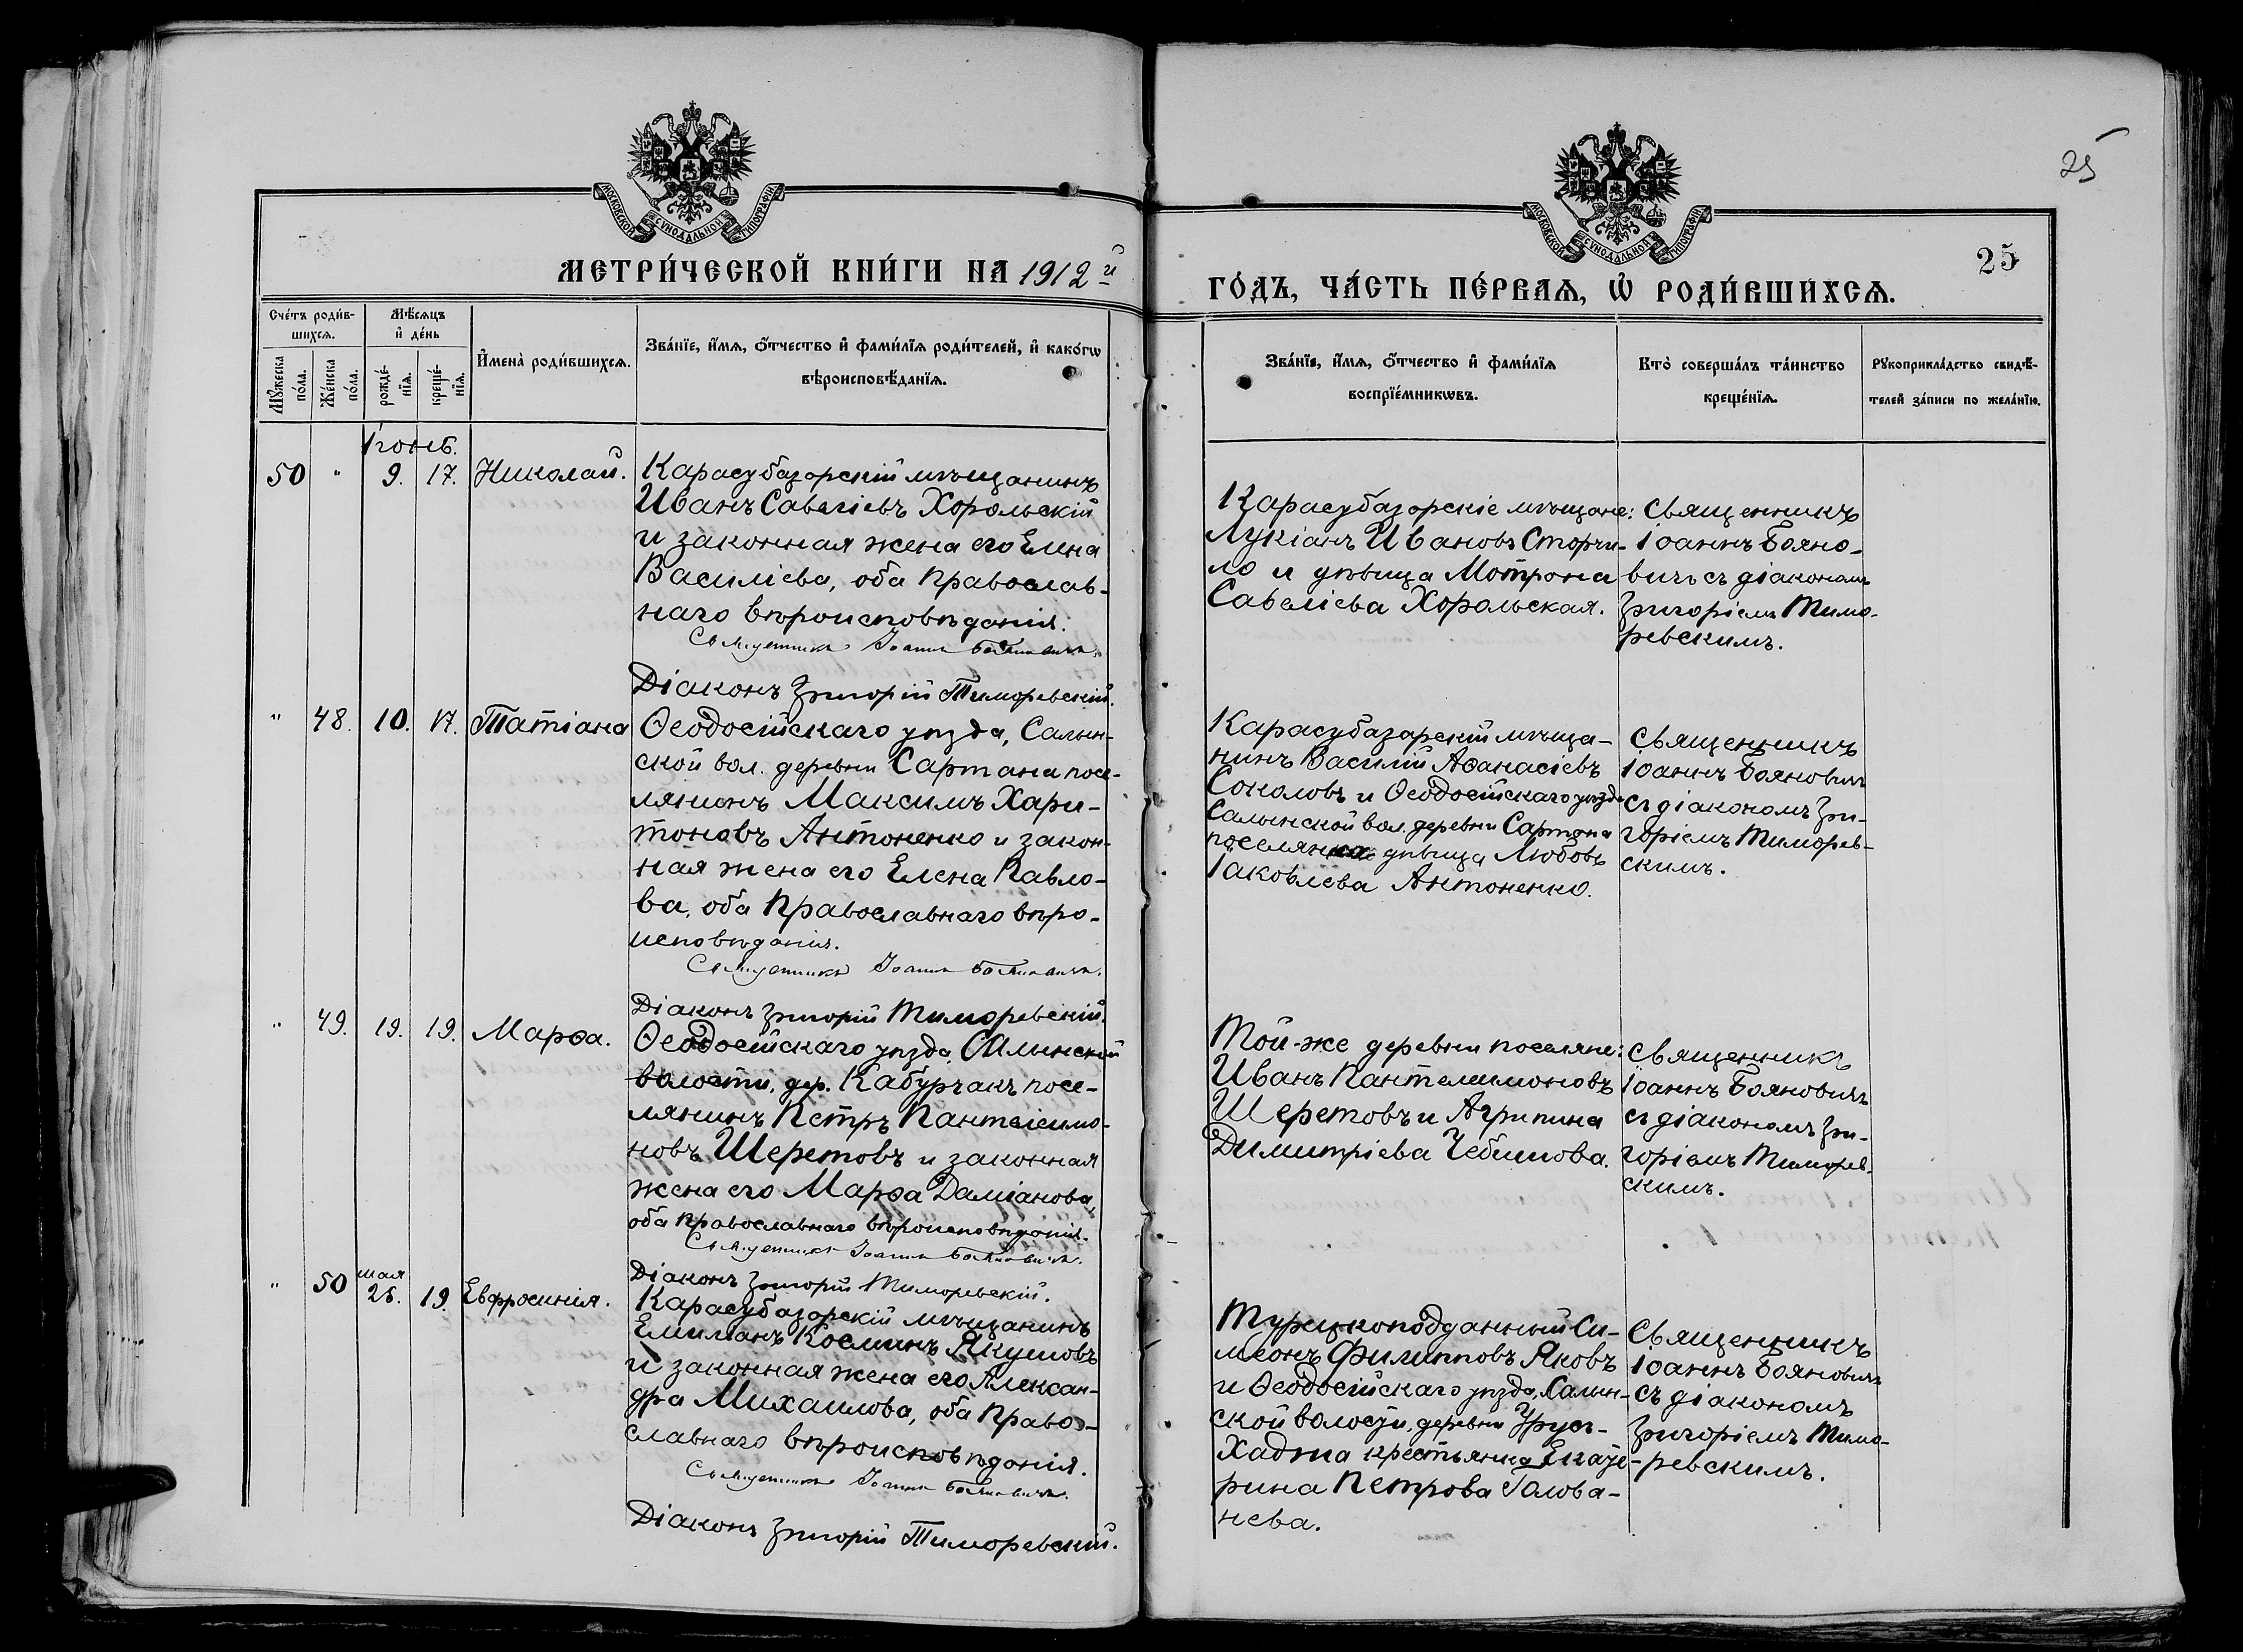 25
МОСКОВСКОЙ СѴНОДАЛЬНОЙ ТИПОГРАФІИ
МОСКОВСКОЙ СѴНОДАЛЬНОЙ ТИПОГРАФІИ
25
МЕТРИ́ЧЕСКОЙ КНИ́ГИ НА 1912 й
ГО́ДЪ, ЧА́СТЬ ПЕ́РВАѦ, Ѡ҆ РОДИ́ВШИХСѦ.
Сче́тъ роди́в-
шихсѧ.
Мꙋ́жеска по́ла.
Же́нска по́ла.
Мѣ́сѧцъ
и҆ де́нь
рожде́-
нїѧ.
креще́-
нїѧ.
И҆мена̀ роди́вшихсѧ.
Зва́нїе, и҆́мѧ, о҆́тчество и҆ фами́лїѧ роди́телей, и҆ како́гѡ
вѣроисповѣ́данїѧ.
Зва́нїе, и҆́мѧ, о҆́тчество и҆ фами́лїѧ
воспрїе́мникѡвъ.
Кто̀ соверша́лъ та́инство
креще́нїѧ.
Рꙋкоприкла́дство свидѣ́-
телей за́писи по жела́нїю.
Іюнь.
50 " 9. 17. Николай.
Карасубазарскій мѣщанинъ
Иванъ Савеліевъ Хорольскій
и законная жена его Елена
Василіева, оба православ-
наго вѣроисповѣданія.
Священникъ Іоаннъ Бояновичъ.
Діаконъ Григорій Тиморевскій.
Карасубазарскіе мѣщане:
Лукіанъ Ивановъ Сторчи-
ло и дѣвица Мотрона
Савеліева Хорольская.
Священникъ
Іоаннъ Бояно-
вичъ съ діакономъ
Григоріемъ Тимо-
ревскимъ.
" 48. 10. 17. Татіана
Ѳеодосійскаго уѣзда, Салын-
ской вол. деревни Сартана посе-
лянинъ Максимъ Хари-
тоновъ Антоненко и закон-
ная жена его Елена Павло-
ва, оба православнаго вѣро-
исповѣданія.
Священникъ Іоаннъ Бояновичъ.
Діаконъ Григорій Тиморевскій.
Карасубазарскій мѣща-
нинъ Василій Аѳанасіевъ
Соколовъ и Ѳеодосійскаго уѣзда
Салынской вол. деревни Сартана
поселянка дѣвица Любовь
Іаковлева Антоненко.
Священникъ
Іоаннъ Бояновичъ
съ діакономъ Гри-
горіемъ Тиморев-
скимъ.
" 49. 19. 19. Марѳа.
Ѳеодосійскаго уѣзда Салынской
волости, дер. Кабурчакъ посе-
лянинъ Петръ Пантелеимо-
новъ Шеретовъ и законная
жена его Марѳа Даміанова,
оба православнаго вѣроисповѣданія.
Священникъ Іоаннъ Бояновичъ.
Діаконъ Григорій Тиморевскій.
Той-же деревни поселяне:
Иванъ Пантелимоновъ
Шеретовъ и Агрипина
Димитріева Чебишова.
Священникъ
Іоаннъ Бояновичъ
съ діакономъ Гри-
горіемъ Тиморев-
скимъ.
мая
" 50 25. 19. Евфросинія.
Карасубазарскій мѣщанинъ
Емиліанъ Косминъ Якушовъ
и законная жена его Алексан-
дра Михаилова, оба право-
славнаго вѣроисповѣданія.
Священникъ Іоаннъ Бояновичъ.
Діаконъ Григорій Тиморевскій.
Турецкоподданный Си-
меонъ Филипповъ Яковъ
и Ѳеодосійскаго уѣзда, Салын-
ской волости, деревни Урус-
Хаджа крестьянка Екате-
рина Петрова Голова-
нева.
Священникъ
Іоаннъ Бояновичъ
съ діакономъ
Григоріемъ Тимо-
ревскимъ.